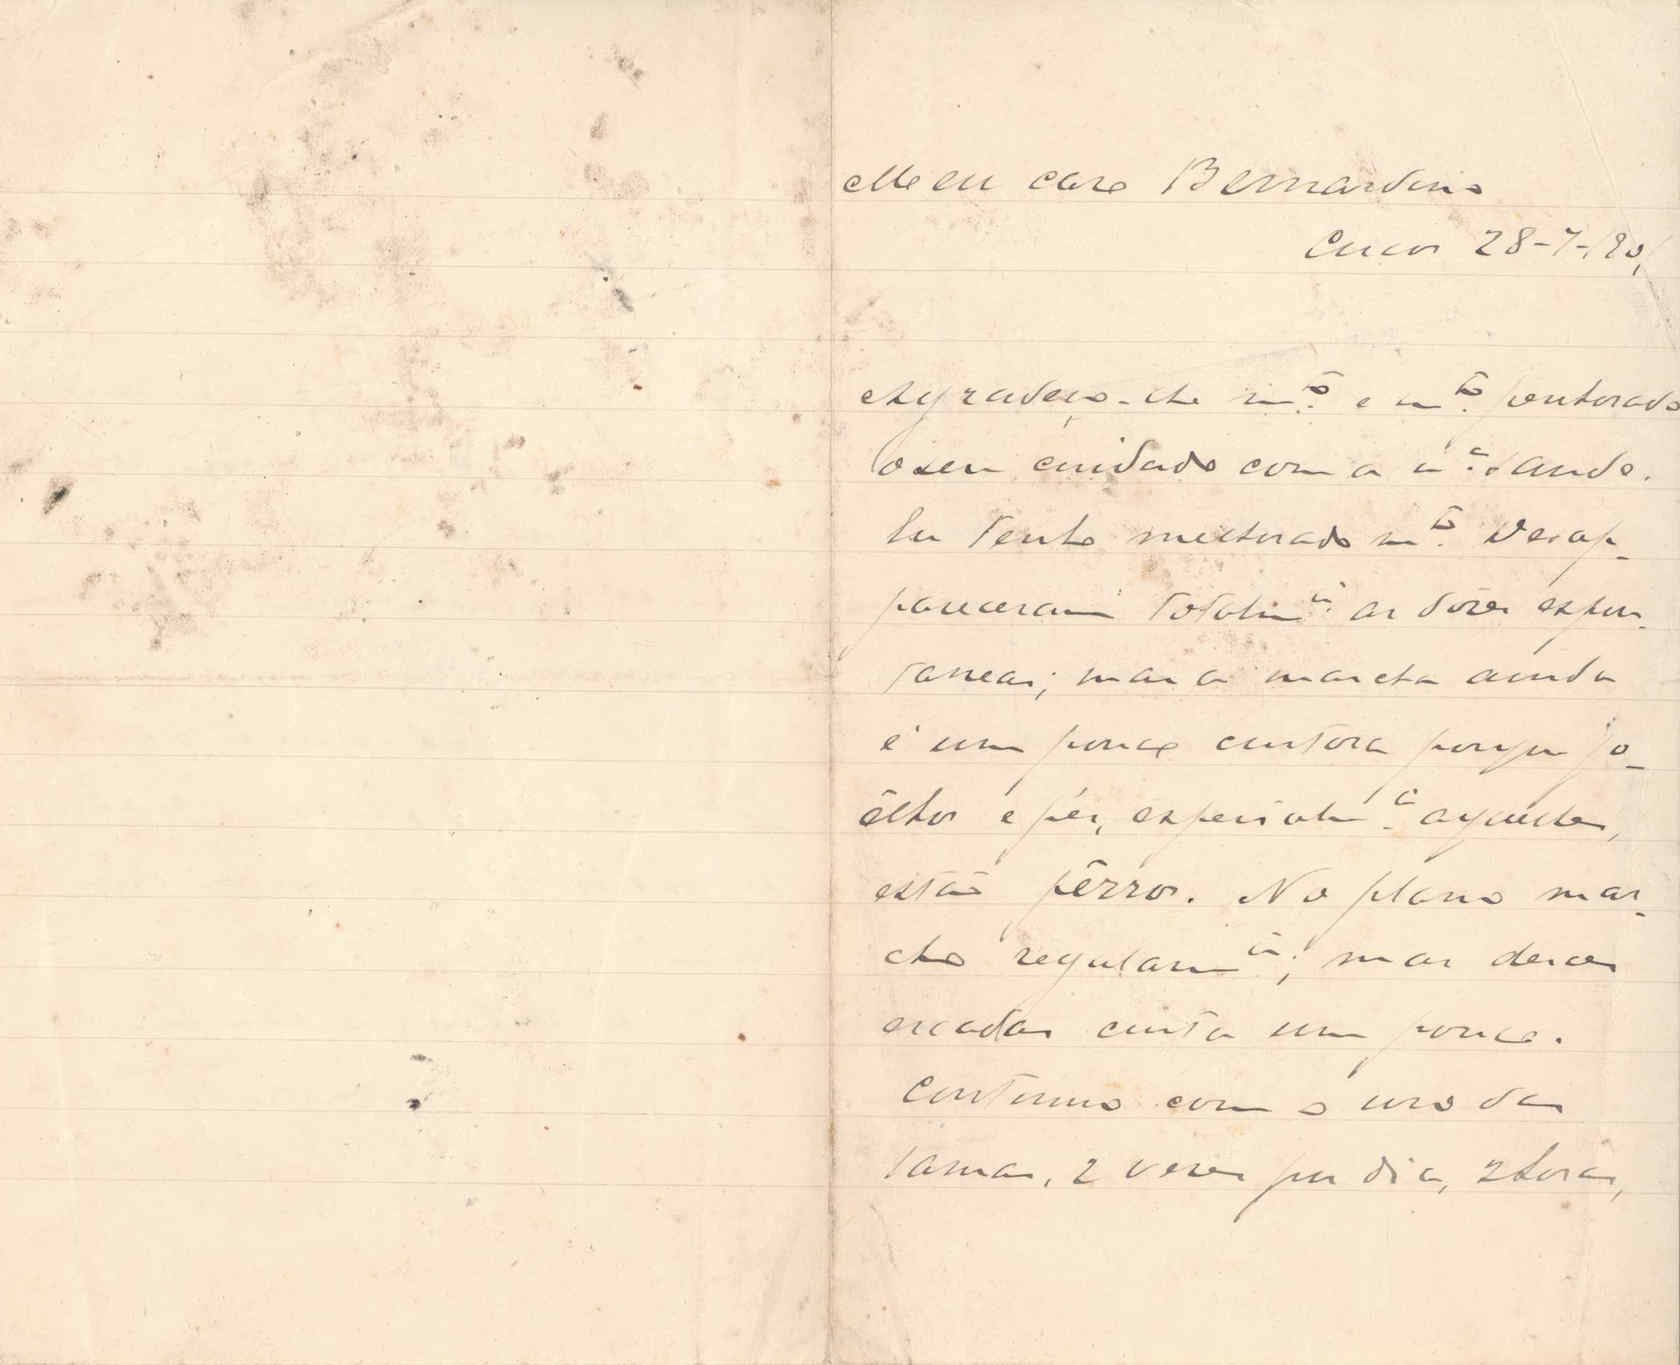 Meu caro Bernardino
Cucos 28-7-90,
Agradeço-lhe m.to e m.to penhorado
o seu cuidado com a m.a saude.
Eu tenho melhorado m.to Desap-
pareceram totalm.e as dôres espon-
taneas; mas a marcha ainda
é um pouco custosa porque jo-
êlhos e pés, especialm.e aquelles,
estão pêrros. No plano mar-
cho regularm.e; mas descer
escadas custa um pouco.
Continuo com o uso das
lamas, 2 vezes por dia, 2 horas,